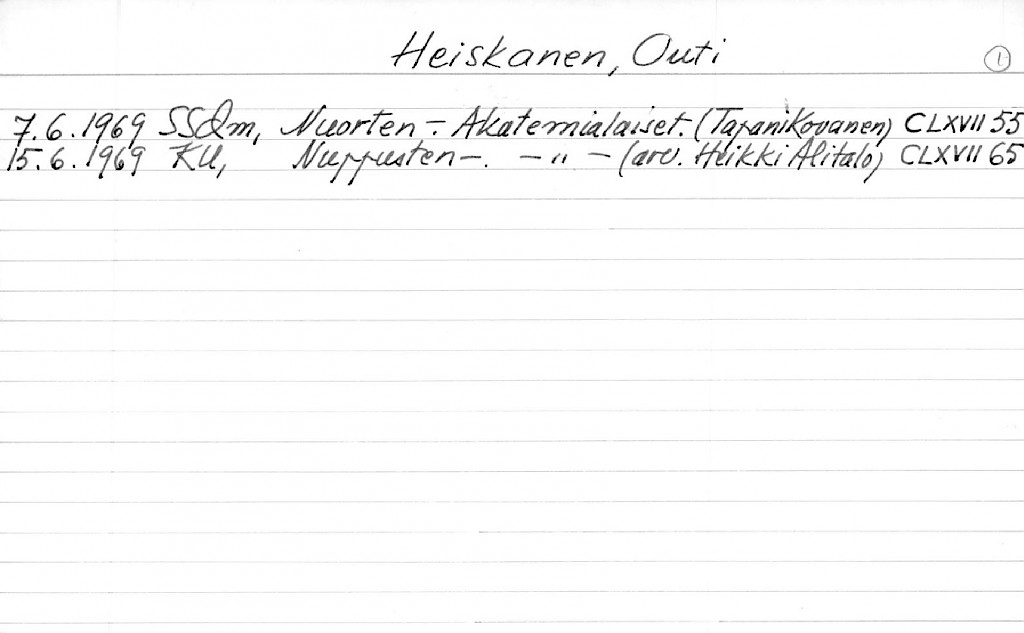 Heiskanen, Outi 1
7.6.1969 SSdm, Nuorten -. Akatemialaiset. (Tapani Kovanen) CLXVII 55
15.6.1969 KU, Nuppusten -. - " - (arv. Heikki Alitalo) CLXVII 65